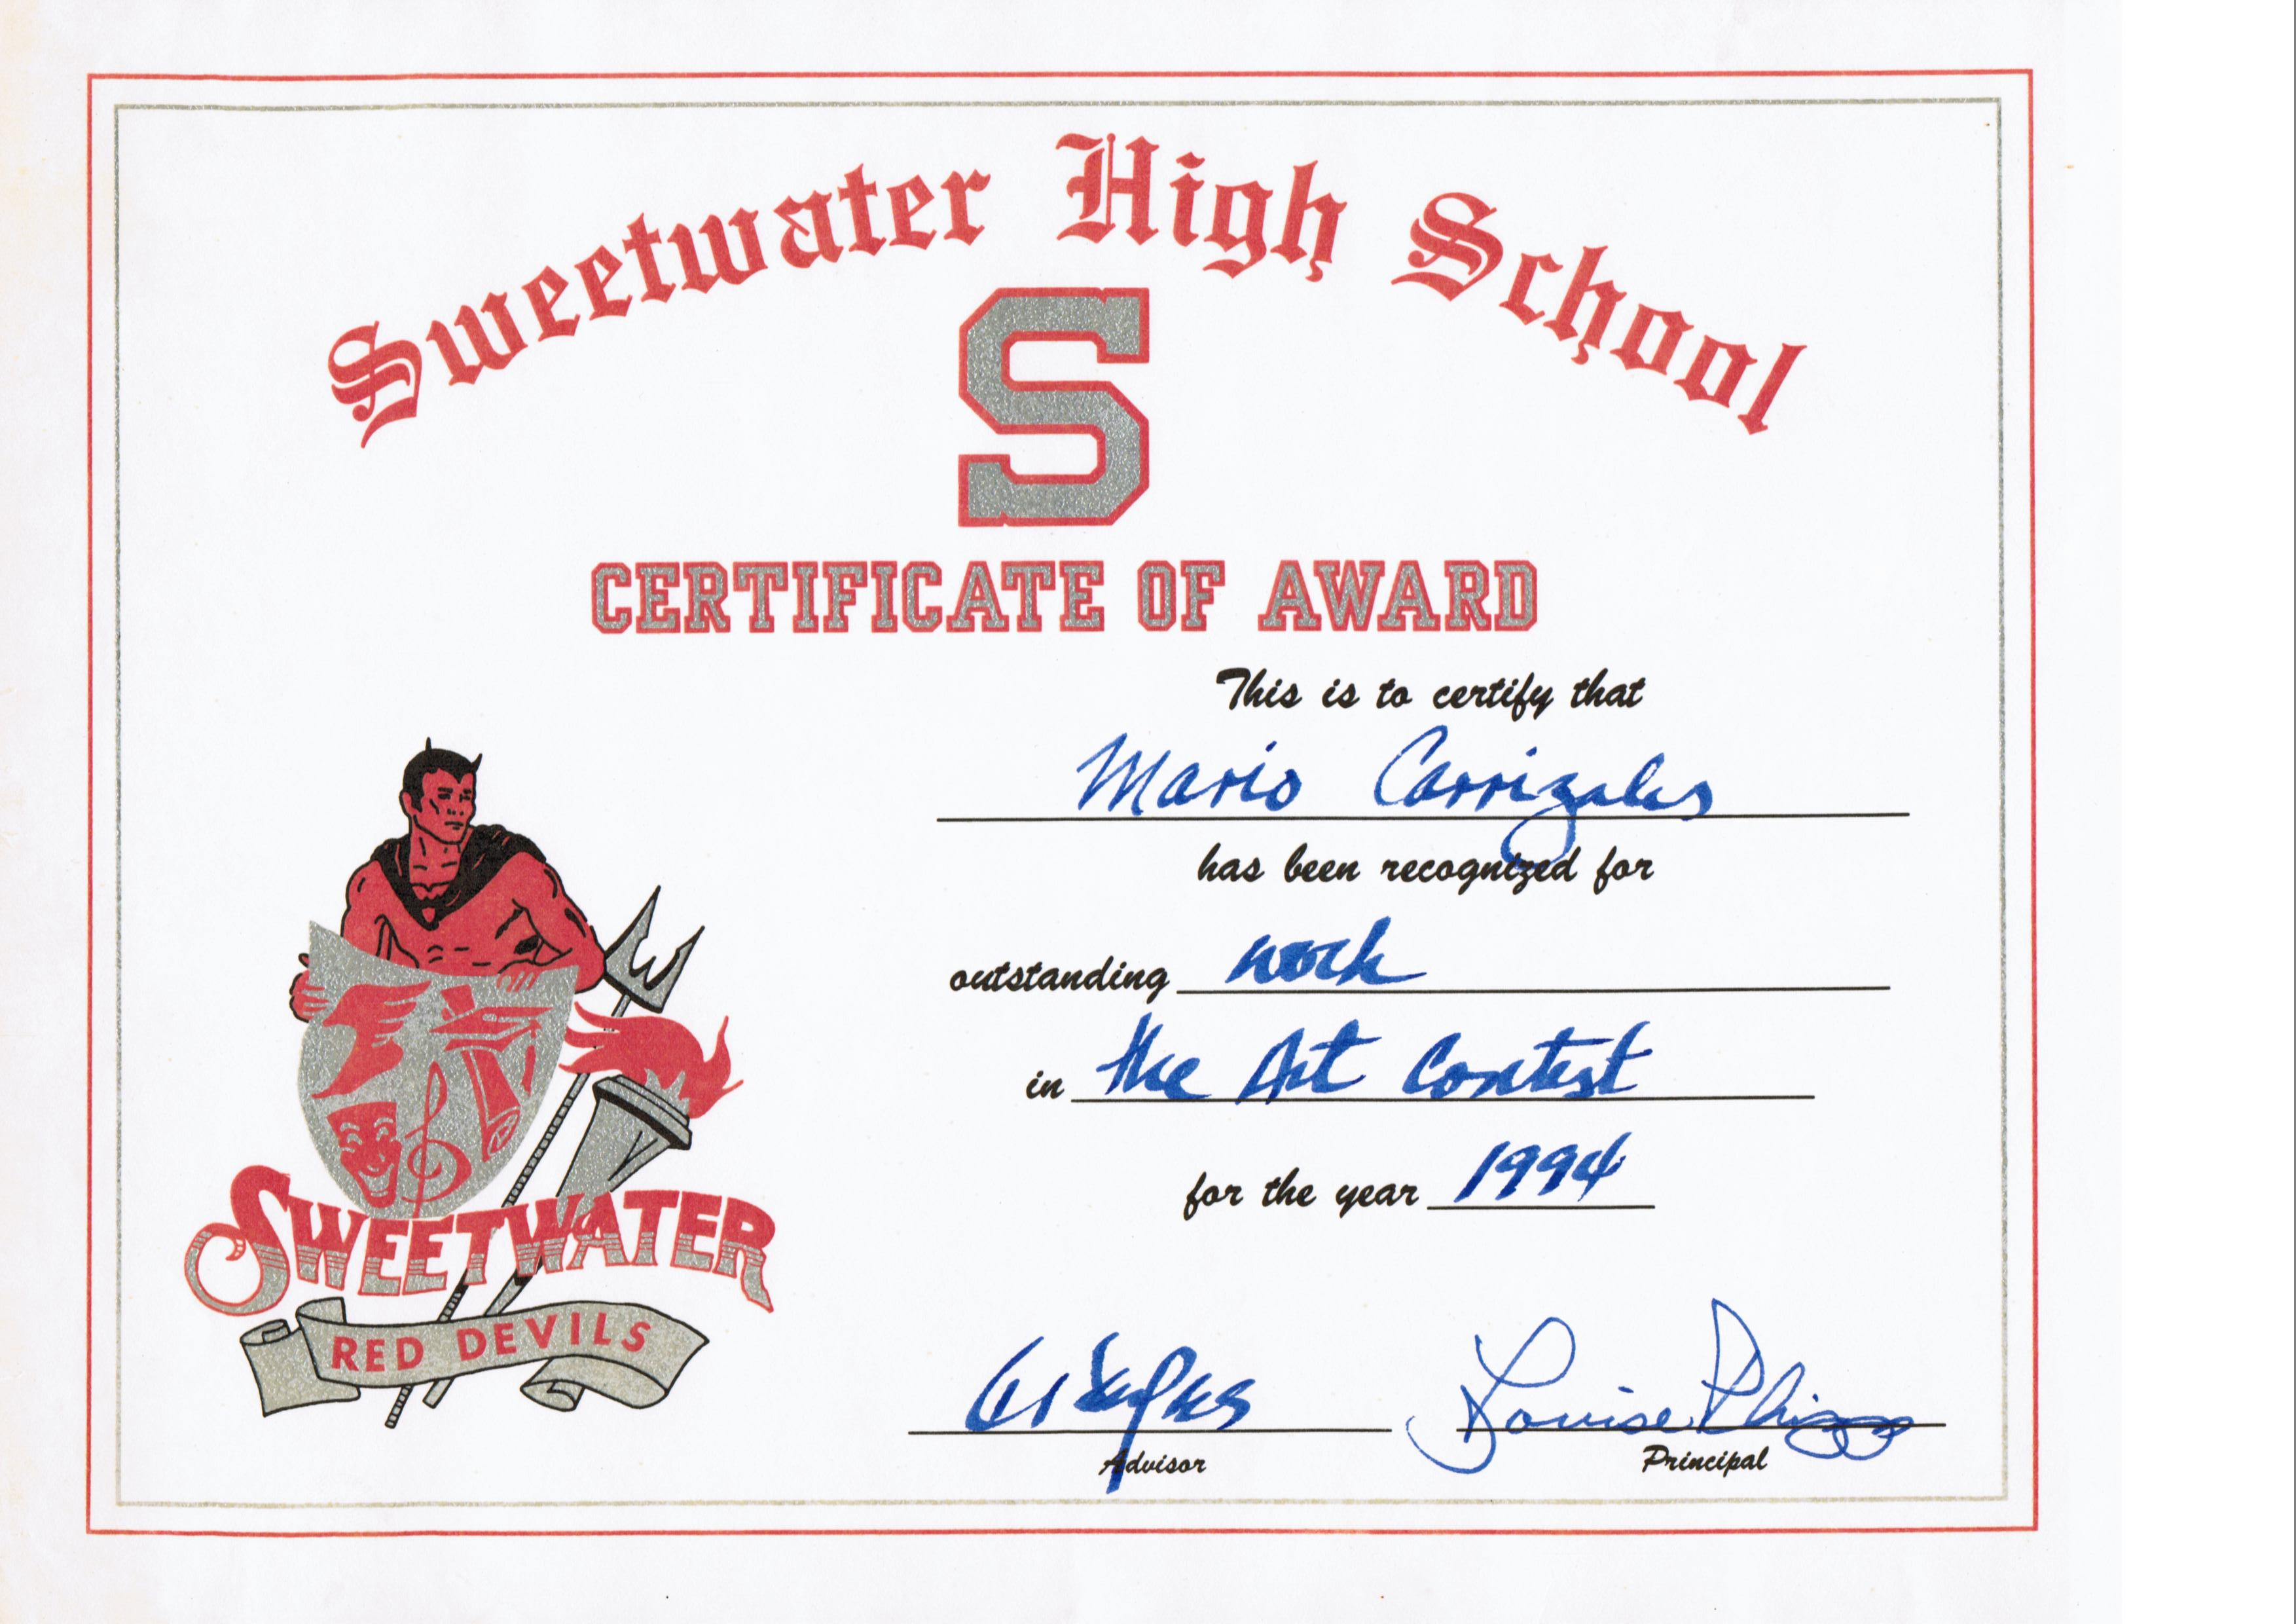 Sweetwater High School
S
CERTIFICATE OF AWARD
This is to certify that
Mario Carrizales
has been recognized for
outstanding work
in the Art Contest
for the year 1994
SWEETWATER
RED DEVILS
Louise Phipps
Advisor
Principal